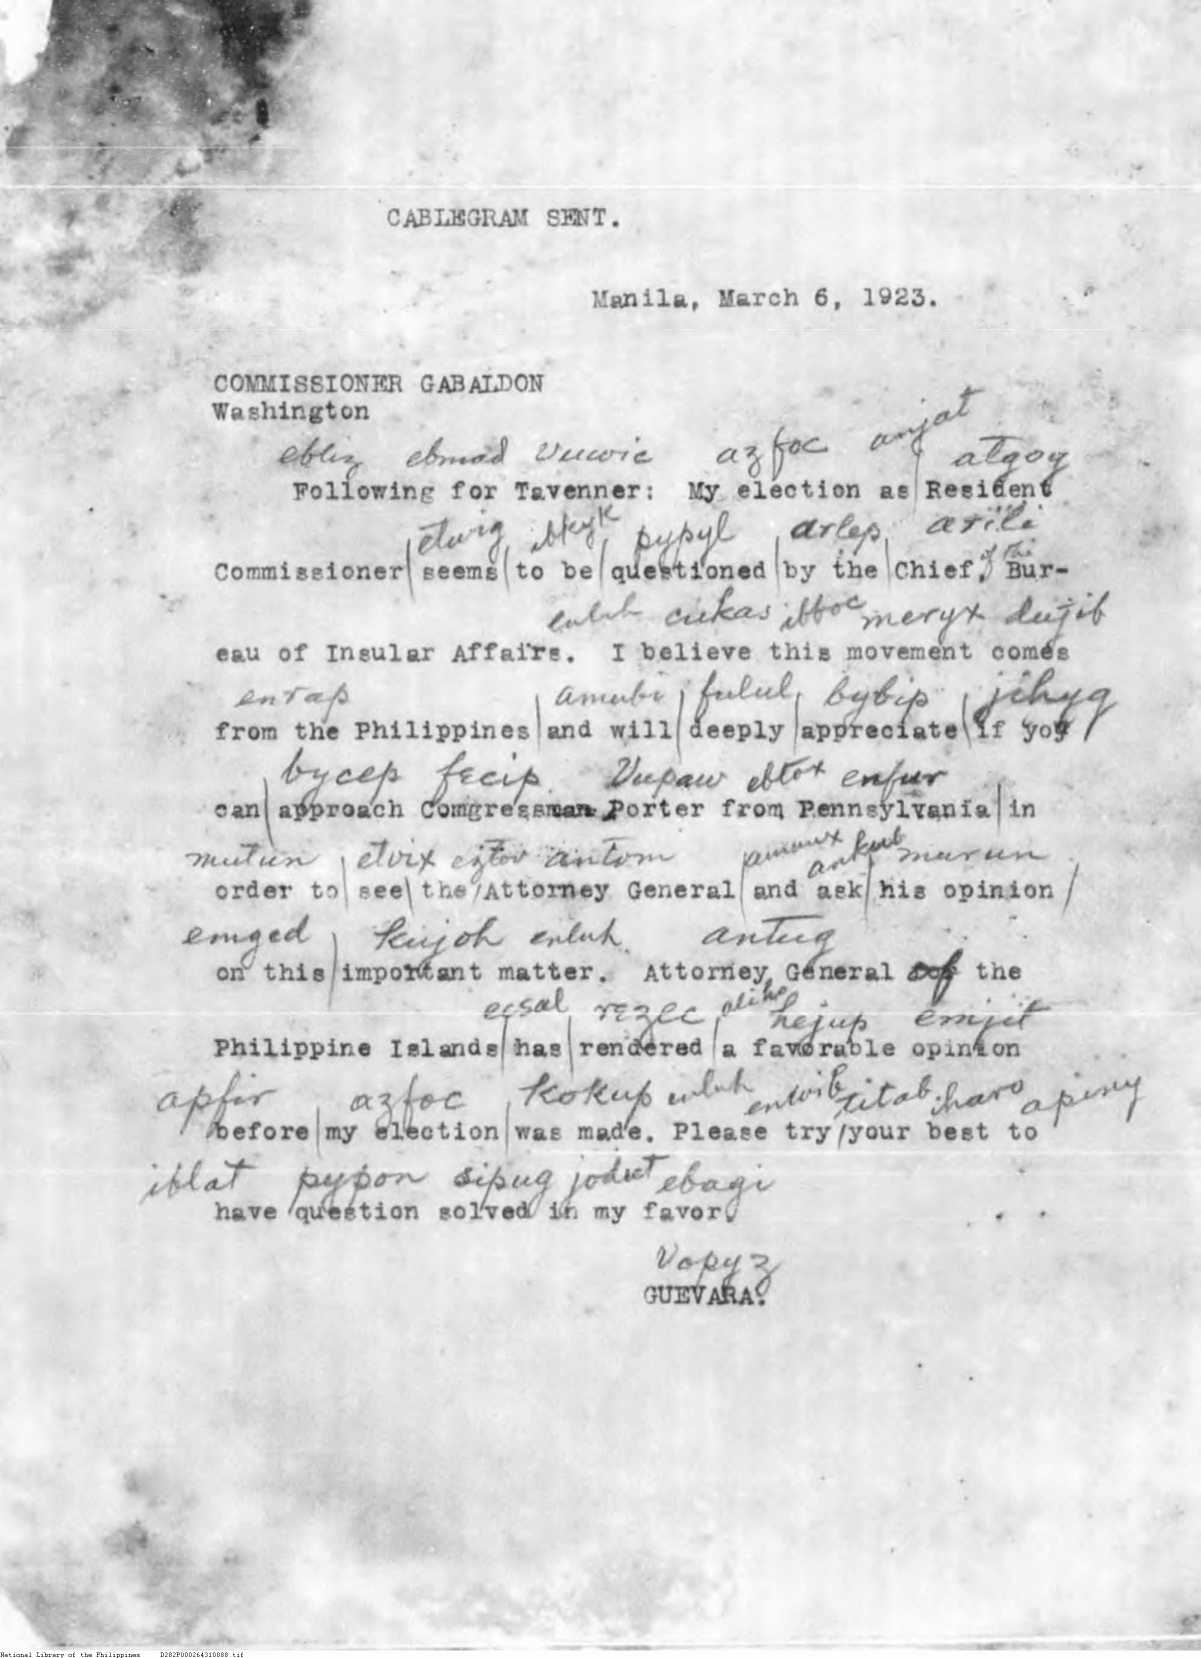 CABLEGRAM SENT.
Manila, March 6, 1923.
COMMISSIONER GABALDON
Washington
anjat
ebliz ebmad Vuwic azfoc atgoy
Following for Tavenner: My election as Resident
etwig ibkyk pypyl arlep arili
of the
Commissioner seems to be questioned by the Chief, Bur-
enluh cukas ibboc meryx dujib
eau of Insular Affairs. I believe this movement comes
enrap amubi fulul bybip jihyg
from the Philippines and will deeply appreciate if you
bycep fecip Vupaw ebtox enfur
can approach Comgressman Porter from Pennsylvania in
mutun etvix eztov antom amaux ankub marun
order to see the Attorney General and ask his opinion
emged kujoh enluh antug
on this important matter. Attorney General of the
ecsal rezec alihe hejup emjit
Philippine Islands has rendered a favorable opinion
apfir azfoc kokup enluh enwib titab haro apiny
before my election was made. Please try your best to
iblat pypon sipug jodut ebagi
have question solved in my favor.
Vopyz
GUEVARA.
National Library of the Philippines D282P000264310088.tif